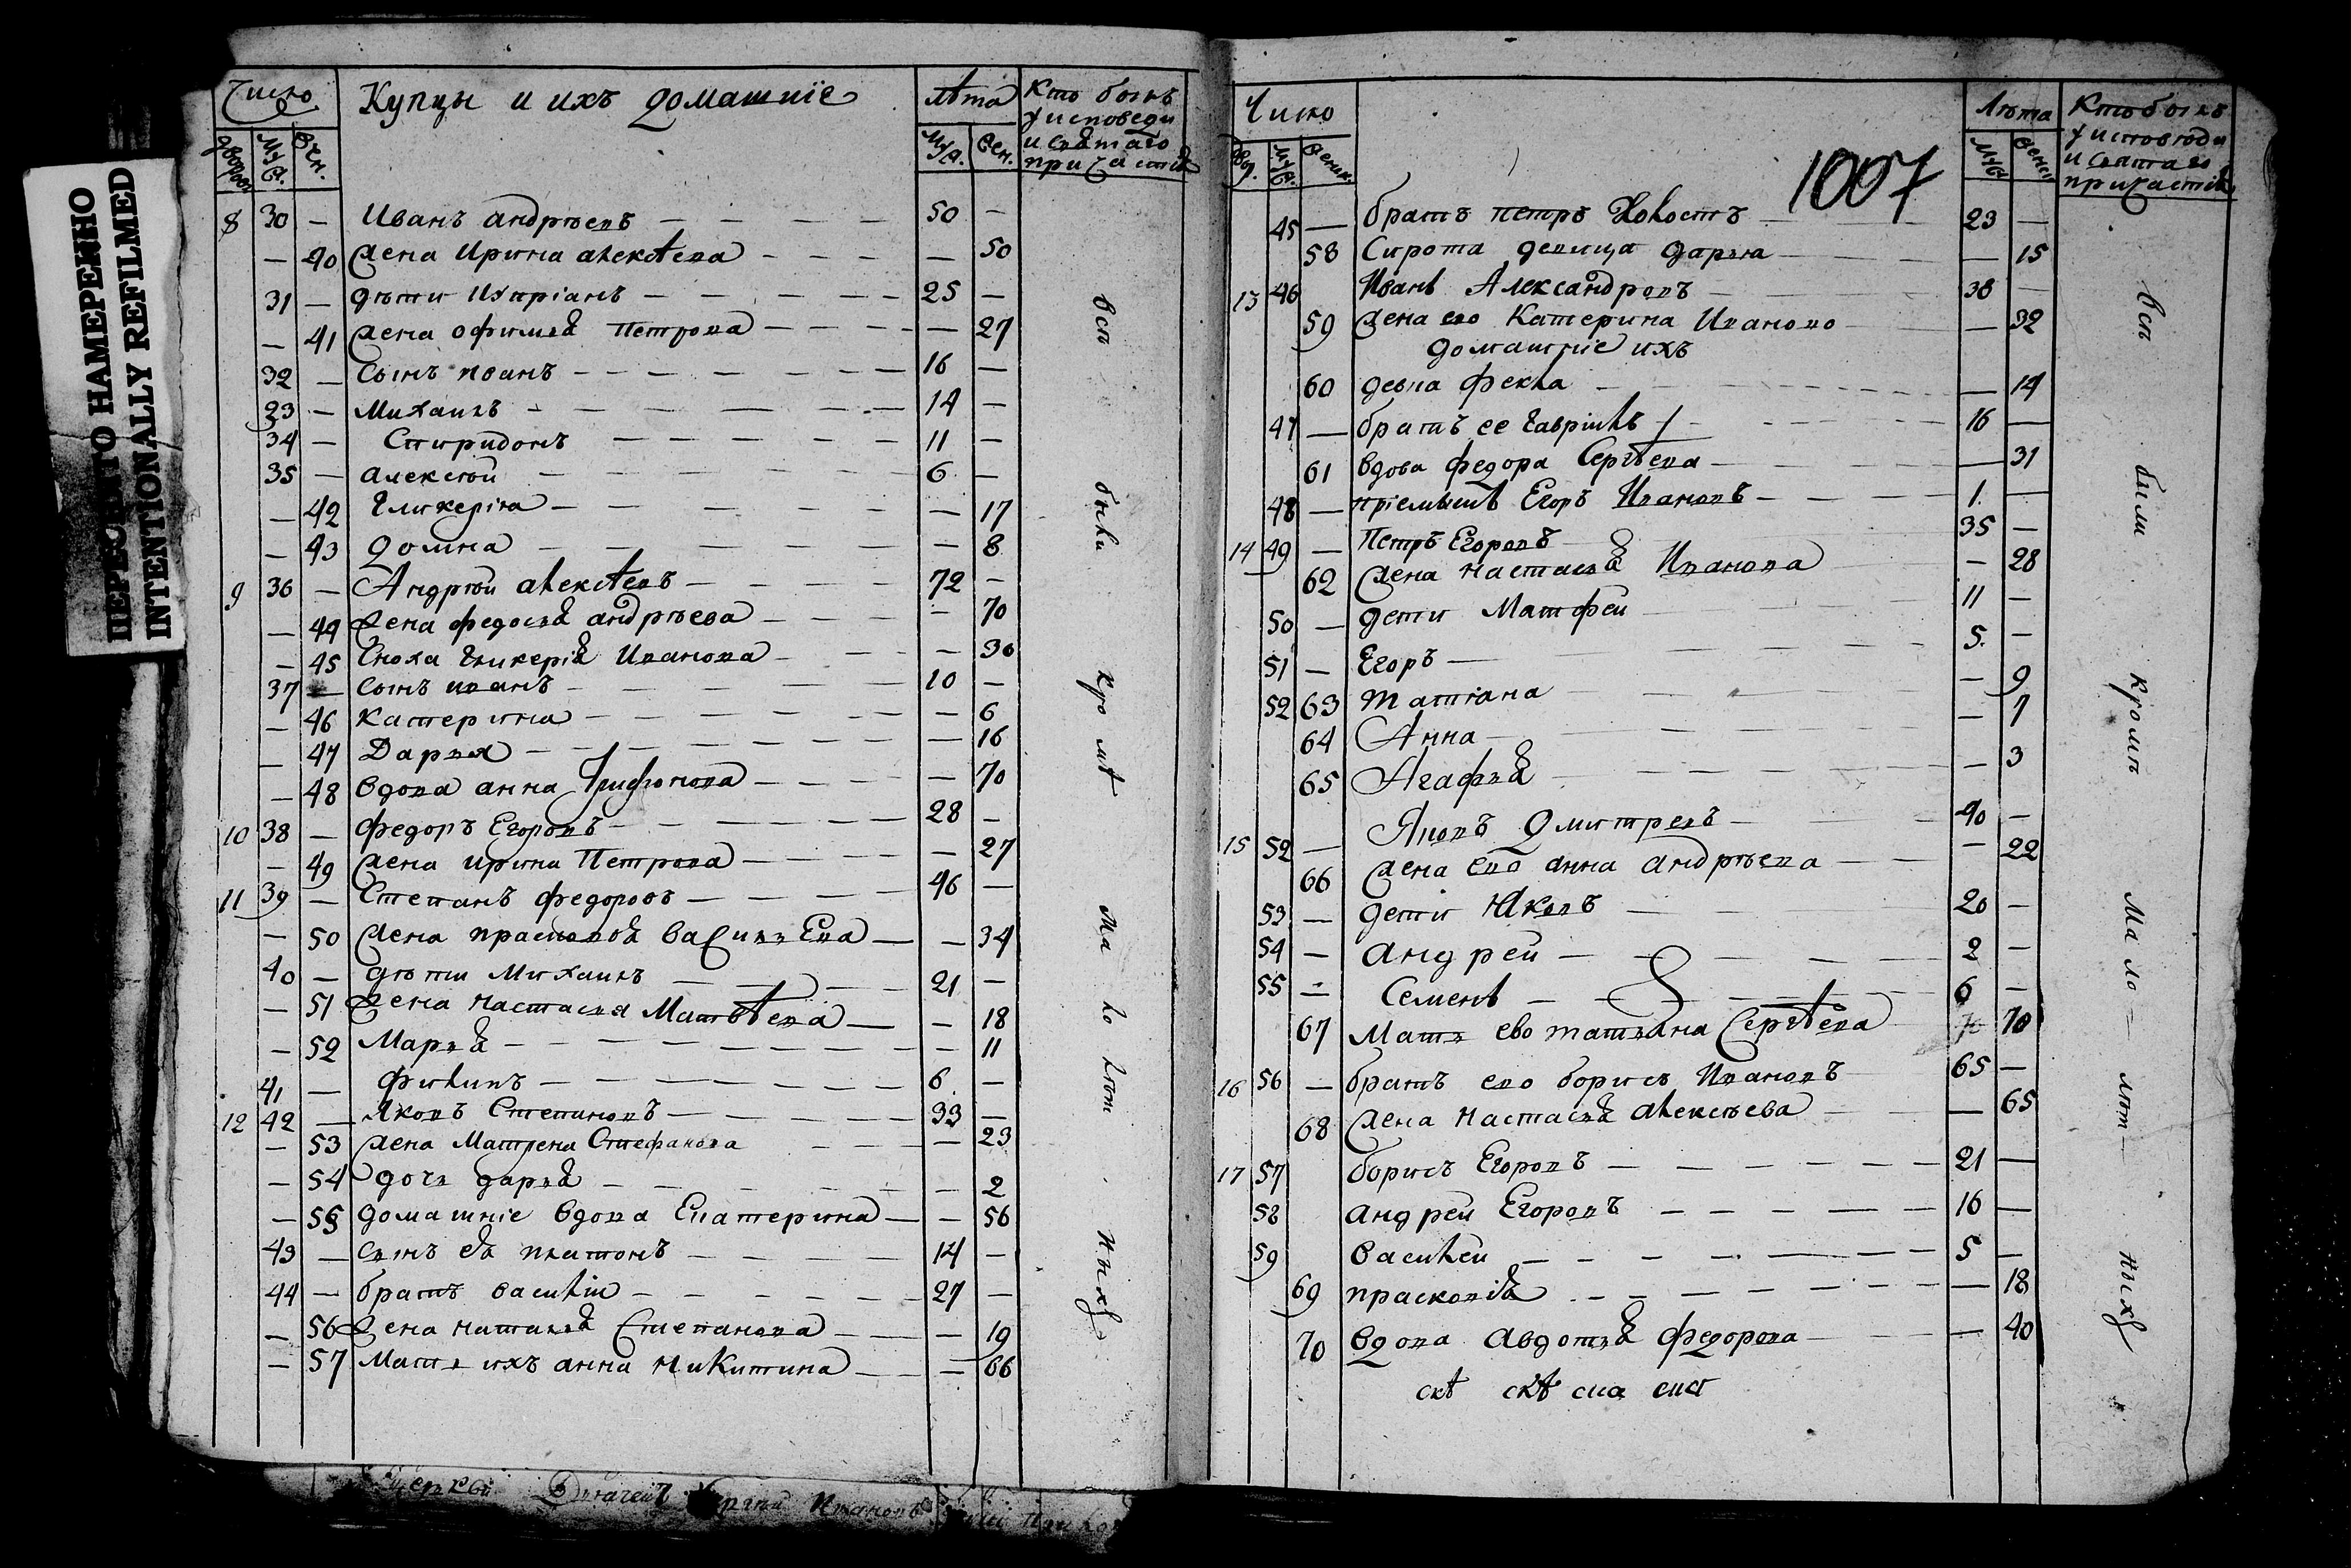 ПЕРЕСНЯТО НАМЕРЕННО
INTENTIONALLY REFILMED
Число Купцы и ихъ домашніе лѣта Кто былъ
у исповеди
и святаго
причастія
дворовъ муж. жен. муж. жен.
8 30 — Иванъ андрѣевъ — 50 —
— 40 жена Ирина алексѣева — — 50
31 — дѣти Купріанъ — 25 —
— 41 жена офимья Петрова — — 27
32 — Сынъ иванъ — 16 —
23 — Михаилъ — 14 —
34 — Спиридонъ — 11 —
35 — алексѣй — 6 —
— 42 Гликеріа — — 17
— 43 Домна — — 8
9 36 — Андрѣй алексѣевъ — 72 —
— 44 жена федосья андрѣева — — 70
— 45 Сноха гликерія Иванова — — 30
37 — сынъ иванъ — 10 —
— 46 катерина — — 6
— 47 Дарья — — 16
— 48 вдова анна Трифонова — — 70
10 38 — федоръ Егоровъ — 28 —
— 49 жена ирина Петрова — — 27
11 39 — Степанъ федоровъ — 46 —
— 50 жена прасковья василъева — — 34
40 — дѣти Михаилъ — 21 —
— 51 жена настасья Матвѣева — — 18
— 52 Марья — — 11
41 — филипъ — 6 —
12 42 — Яковъ Степановъ — 33 —
— 53 жена Матрена Стефанова — — 23
— 54 дочь дарья — — 2
— 55 домашніе вдова Екатерина — — 56
43 — сынъ ея платонъ — 14 —
44 — братъ василій — 27 —
— 56 жена наталья Степанова — — 19
— 57 Мать ихъ анна никитина — — 66
всѣ были кромѣ малолѣтныхъ
Число Лѣта Кто былъ
у исповѣди
и святаго
причастія
двор. муж. женск. муж женск
1007
45 — братъ петръ Холостъ — 23 —
58 Сирота девица дарья — — 15
13 46 Иванъ Александровъ — 38 —
59 жена его Катерина Иванова — — 32
домашніе ихъ
60 девка фекла — — 14
47 — братъ ее гаврилъ — 16 —
61 вдова федора Сергѣева — — 31
48 — пріемышъ Егоръ Ивановъ — 1. —
14 49 — Петръ Егоровъ 35 —
62 жена настасья Иванова — 28
50 — дети Матфей 11 —
51 — Егоръ — 5. —
52 63 татіана — 9
64 Анна — — 7
65 Агафья — — 3
15 52 — Яковъ Дмитревъ — 40 —
66 жена ево анна андрѣева — — 22
53 — дети Яковъ — 20 —
54 — андрей — 2 —
55 — Семенъ — 6 —
67 Мать ево татьяна Сергѣева 70 70
16 56 — братъ ево борисъ Ивановъ 65 —
68 жена настасья алексѣева — — 65
17 57 борисъ Егоровъ — 21 —
58 андрей Егоровъ — 16 —
59 василей — 5 —
69 прасковія — — 18
70 вдова авдотья федорова — — 40
всѣ были кромѣ мало=лѣтныхъ
Ивановъ